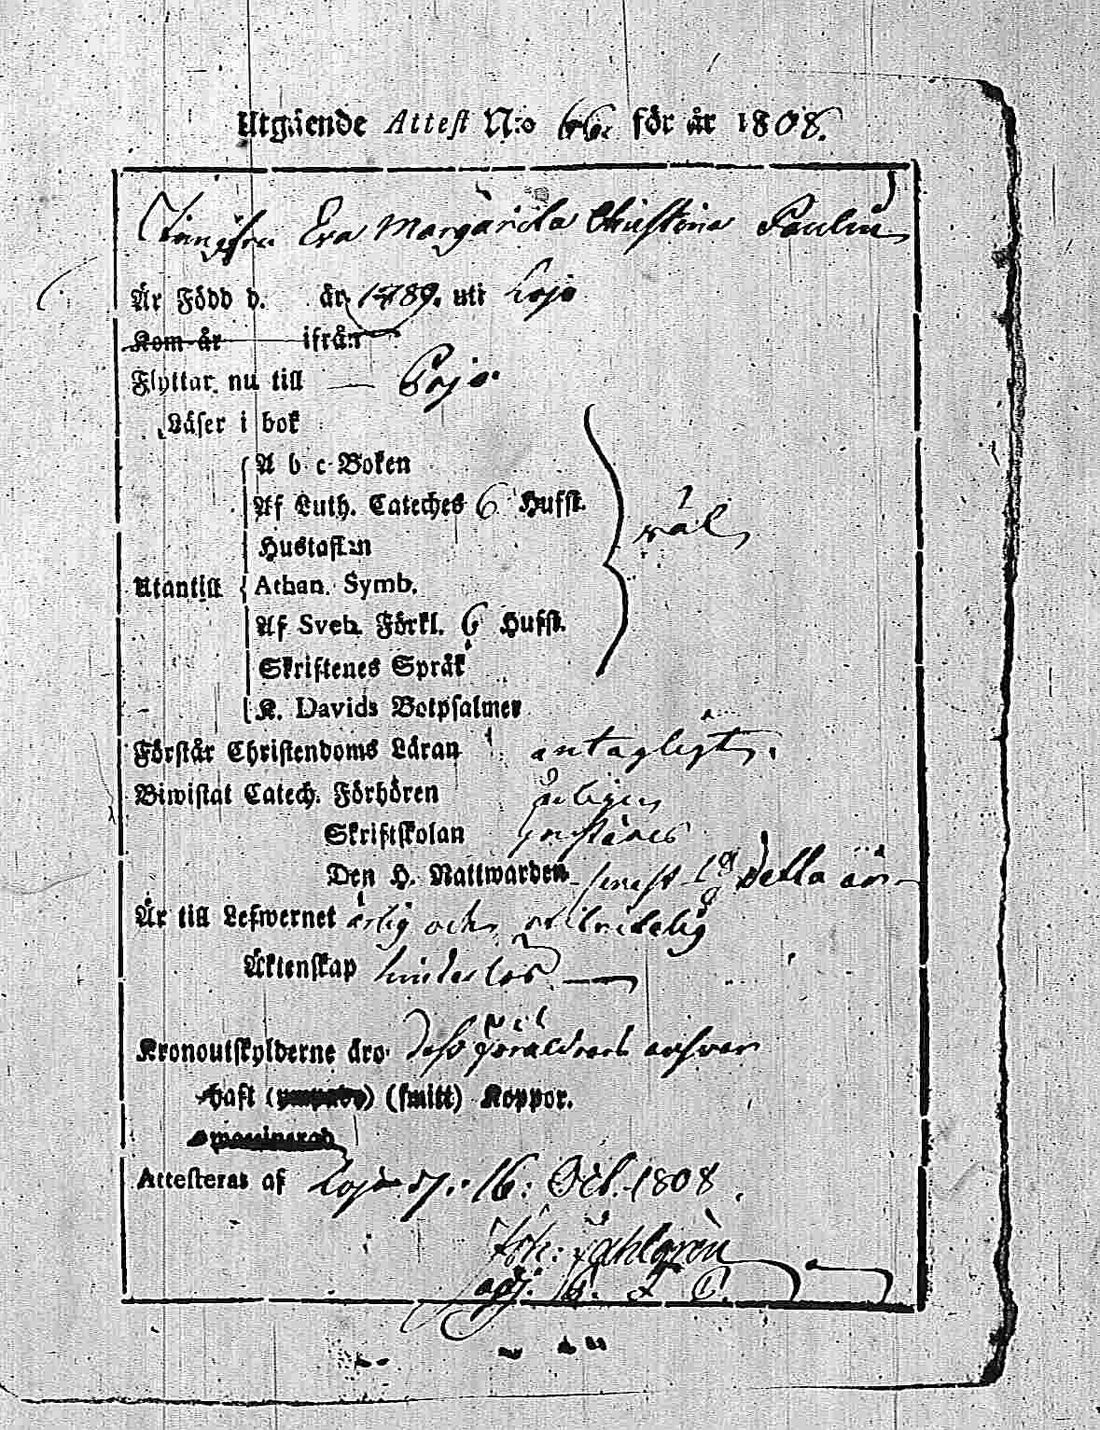 Utgående Attest N:o 66. för år 1808.
Jungfru Eva Margarita Christina Paulin
Är Född d. år 1789. uti Lojo
Kom år ifrån
Flyttar nu till Pojo
Läser i bok
A b c-Boken
Af Luth. Cateches 6 Hufst.
wäl
Hustaflan
Utantill Athan. Symb.
Af Sveb. Förkl. 6 Hufst.
Skriftenes Språk
K. Davids Botpsalmer
Förstår Christendoms Läran antagligt.
Biwistat Catech. Förhören årligen
Skriftskolan
Den H. Nattwarden senast detta år
Är till Lefwernet ärlig och
Äktenskap hinderlös
Kronoutskylderne äro dess Föräldrars answar
haft (smitt) Koppor.
Attesteras af Lojo d. 16: Oct. 1808.
Joh: Dahlgren
adj.